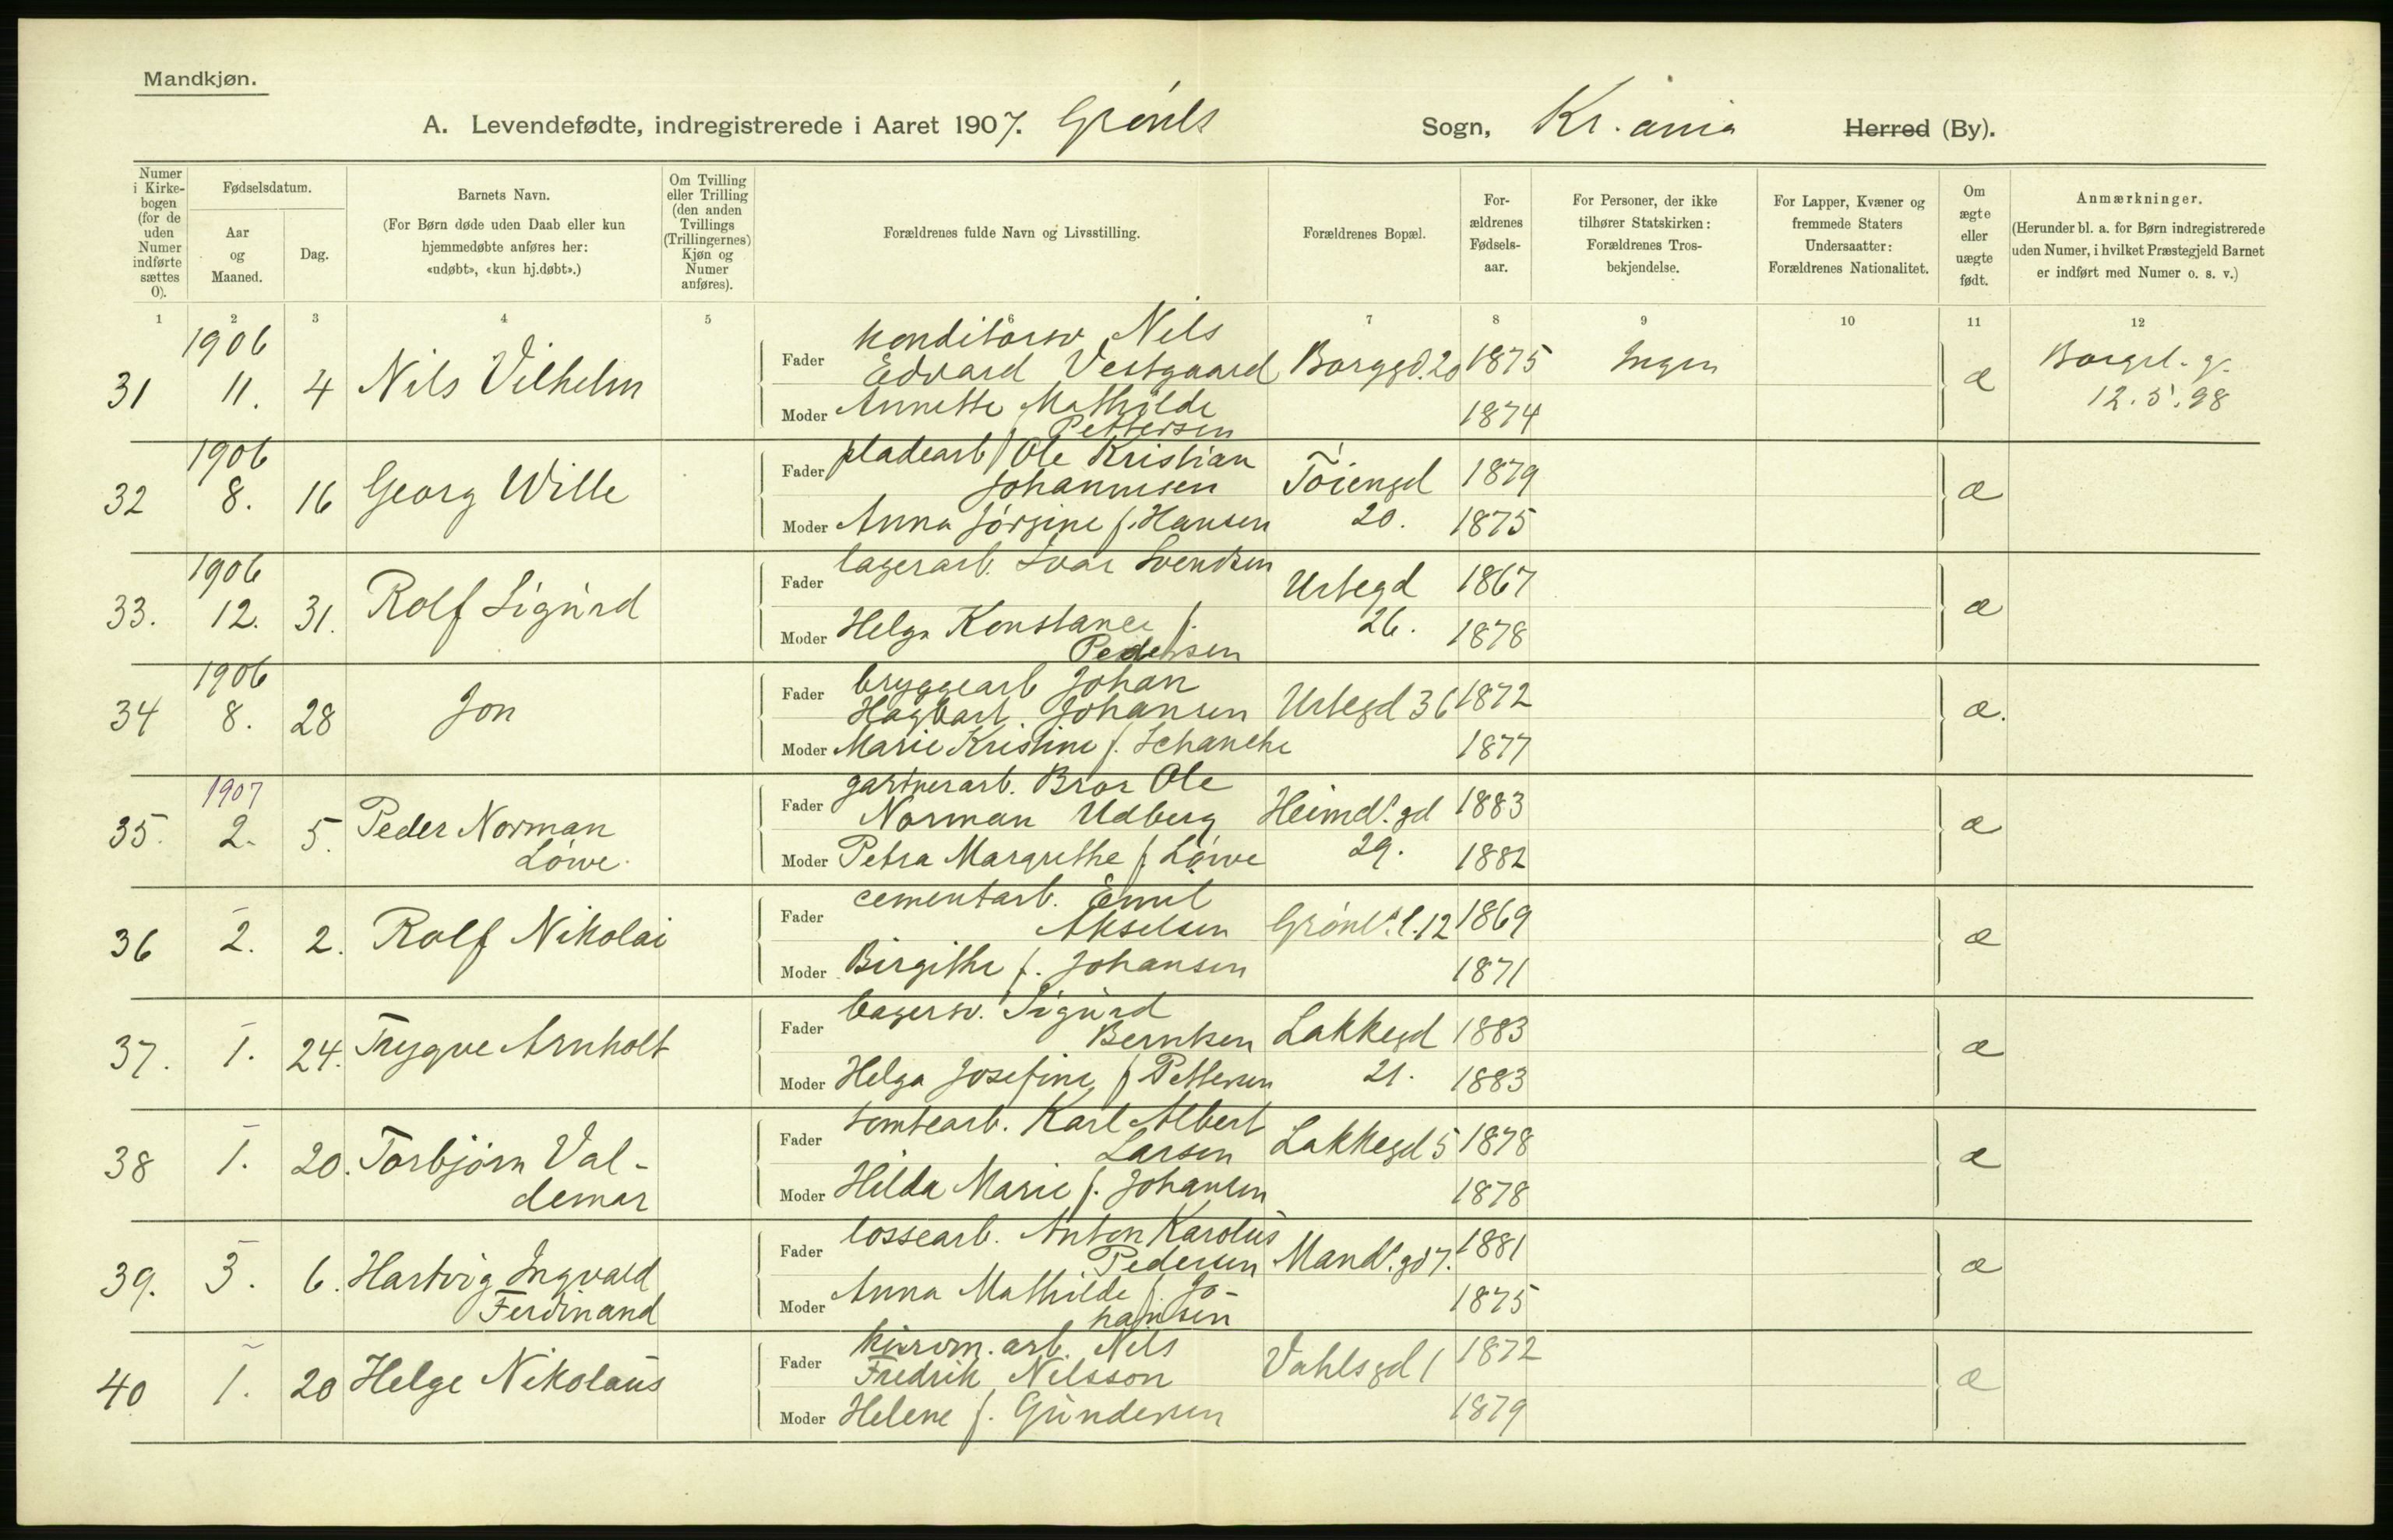 Mandkjøn.
A. Levendefødte, indregistrerede i Aaret 1907. Grønls Sogn, Kr.ania Herred (By).
Numer i Kirkebogen (for de uden Numer indførte sættes 0).
Fødselsdatum.
Aar og Maaned.
Dag.
Barnets Navn.
(For Børn døde uden Daab eller kun hjemmedøbte anføres her: «udøbt», «kun hj.døbt».)
Om Tvilling eller Trilling (den anden Tvillings (Trillingernes) Kjøn og Numer anføres).
Forældrenes fulde Navn og Livsstilling.
Forældrenes Bopæl.
Forældrenes Fødselsaar.
For Personer, der ikke tilhører Statskirken: Forældrenes Trosbekjendelse.
For Lapper, Kvæner og fremmede Staters Undersaatter: Forældrenes Nationalitet.
Om ægte eller uægte født.
Anmærkninger.
(Herunder bl. a. for Børn indregistrerede uden Numer, i hvilket Præstegjeld Barnet er indført med Numer o. s. v.)
1 2 3 4 5 6 7 8 9 10 11 12
31 1906 11. 4 Nils Vilhelm
Fader konditorsv Nils Edvard Vestgaard Borggd. 20 1875 Ingen æ Borgel. v.
Moder Annette Mathilde Pettersen 1874 12.5.98
32 1906 8. 16 Georg Wille
Fader pladearb Ole Kristian Johannesen Tøiengd 1879 æ
Moder Anna Jørgine f. Hansen 20. 1875
33. 1906 12. 31. Rolf Sigurd
Fader lagerarb. Ivar Svendsen Urtegd 1867 æ
Moder Helga Konstance f. Pedersen 26. 1878
34 1906 8. 28 Jon
Fader bryggearb Johan Hagbart Johansen Urtegd 36 1872 æ.
Moder Marie Kristine f. Schanche 1877
35. 1907 2. 5. Peder Norman Løwe
Fader gartnerarb. Bror Ole Norman Udberg Heimd.s gd 1883 æ
Moder Petra Margrethe f. Løwe 29. 1882
36 2. 2. Rolf Nikolai
Fader cementarb. Emil Akselsen Grønl.s l. 12 1869 æ
Moder Birgithe f. Johansen 1871
37. 1. 24. Trygve Arnholt
Fader bagersv. Sigurd Berntsen Lakkegd 1883 æ
Moder Helga Josefine f Pettersen 21. 1883
38 1. 20. Torbjørn Valdemar
Fader tomtearb. Karl Albert Larsen Lakkegd 5 1878 æ
Moder Hilda Marie f. Johansen 1878
39. 3. 6. Hartvig Ingvald Ferdinand
Fader lossearb. Anton Karolus Pedersen Mand.s gd 7. 1881 æ
Moder Anna Mathilde f. Johansen 1875
40 1. 20 Helge Nikolaus
Fader arb. Nils Fredrik Nilsson Vahlsgd 1 1872 æ
Moder Helene f. Gundersen 1879